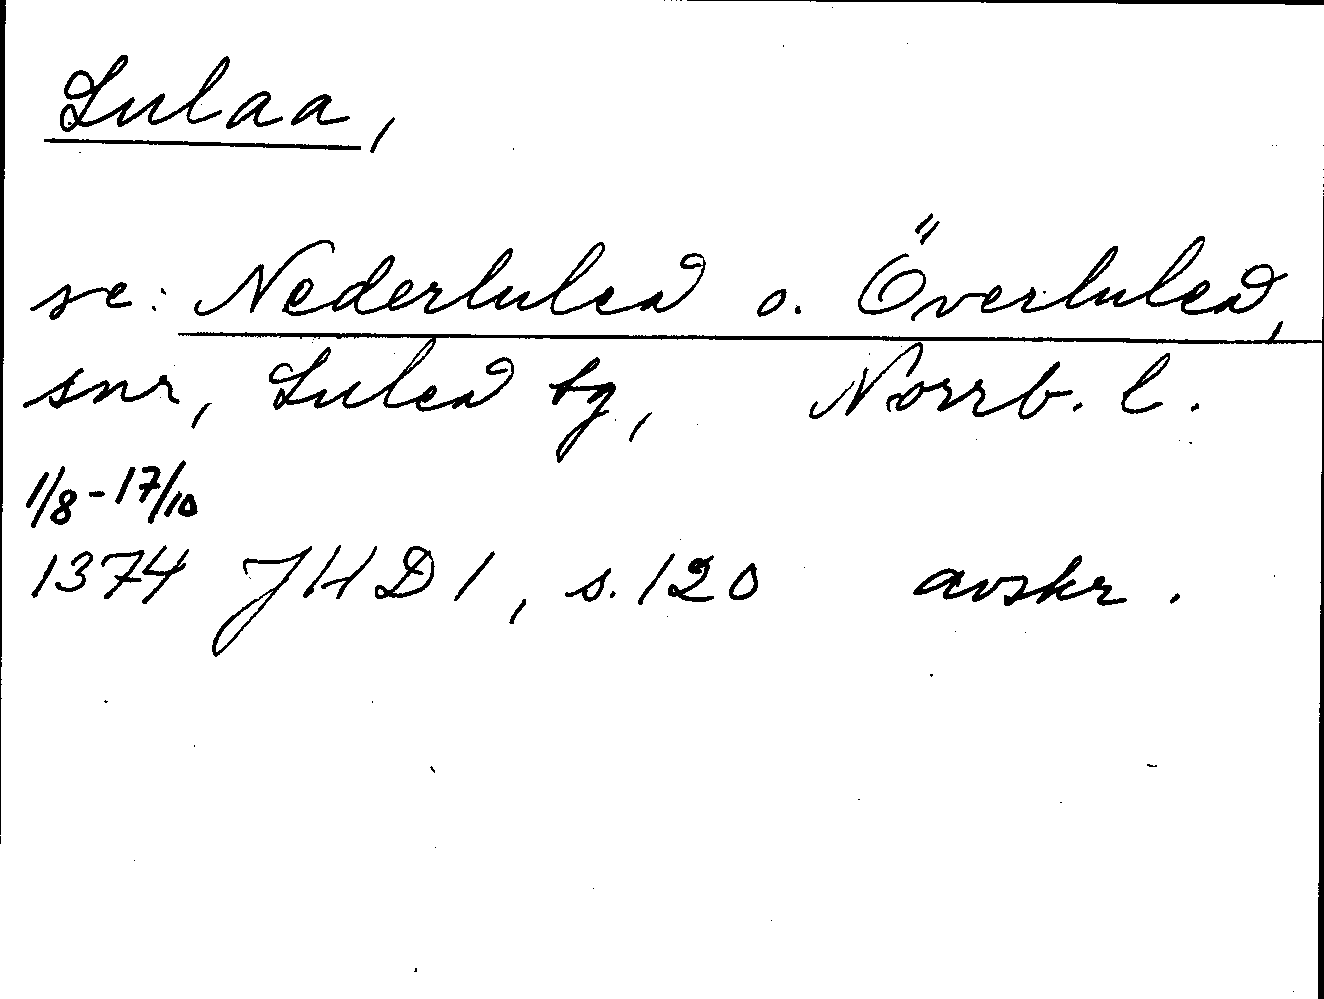 Lulaa,
se: Nederluleå o. Överluleå,
snr, Luleå tg, Norrb. l.
1/8-17/10
1374 JHD1, s. 120 avskr.